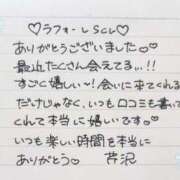 ♡ラフォーレさん♡
ありがとうございました。
最近たくさん会えてる...!!
すごく嬉しい〜!会いに来てくれる
だけじゃなく、いつも口コミも書いて
くれて本当に嬉しいです。
いつも楽しい時間を本当に
ありがとう♡ 芹沢